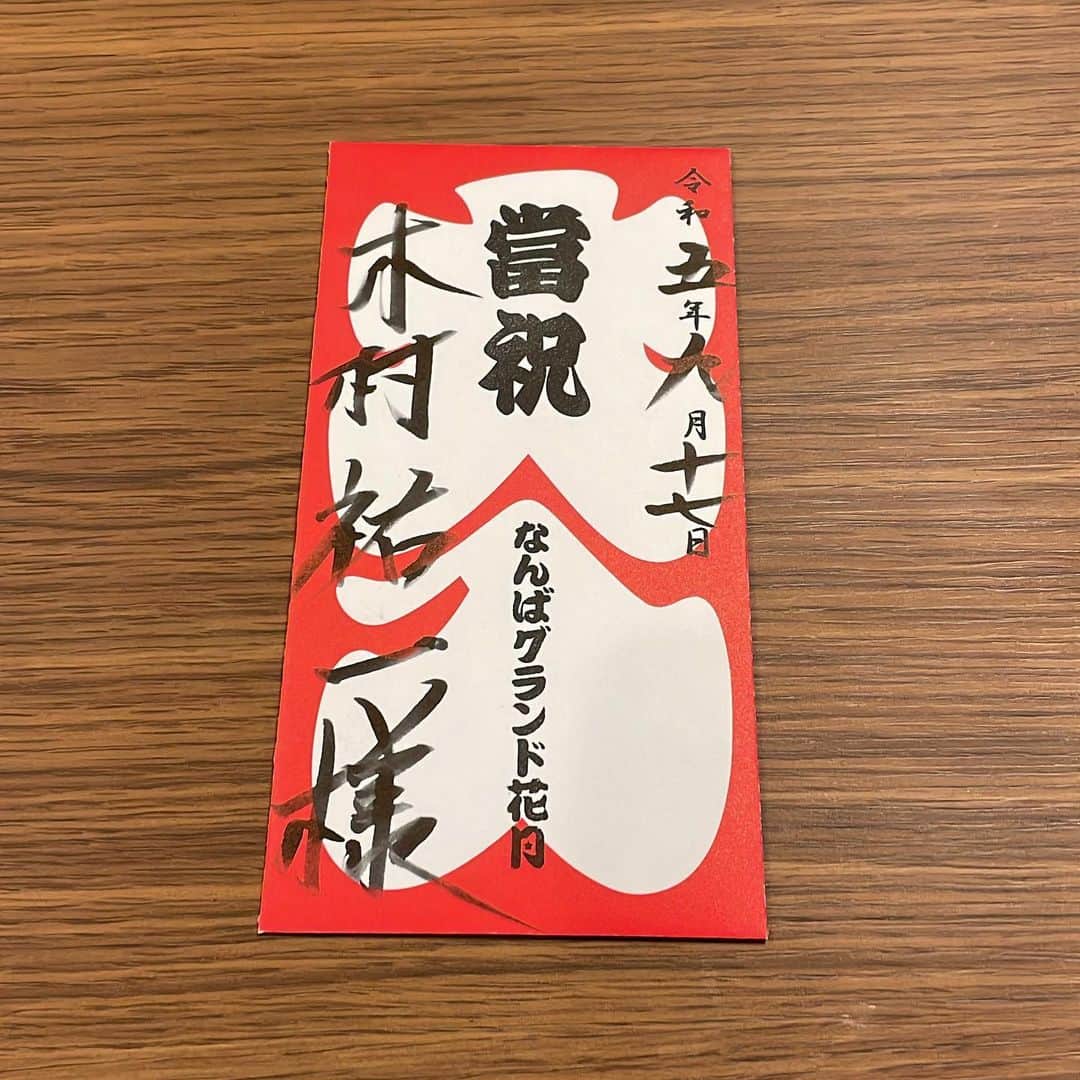 令和五年九月十七日
當祝
なんばグランド花月
木村祐一様